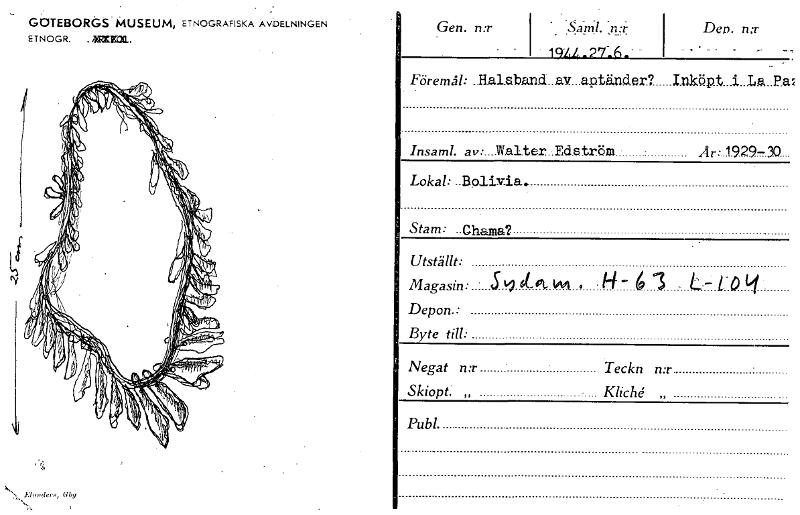 GÖTEBORGS MUSEUM, ETNOGRAFISKA AVDELNINGEN
ETNOGR.
25 cm
Elanders, Gbg
Gen. n:r Saml. n:r Dep. n:r
1944.27.6.
Föremål: Halsband av aptänder? Inköpt i La Paz
Insaml. av: Walter Edström År: 1929-30
Lokal: Bolivia.
Stam: Chama?
Utställt:
Magasin: Sydam. H-63 L-104
Depon.:
Byte till:
Negat n:r Teckn n:r
Skiopt. „ Kliché „
Publ.